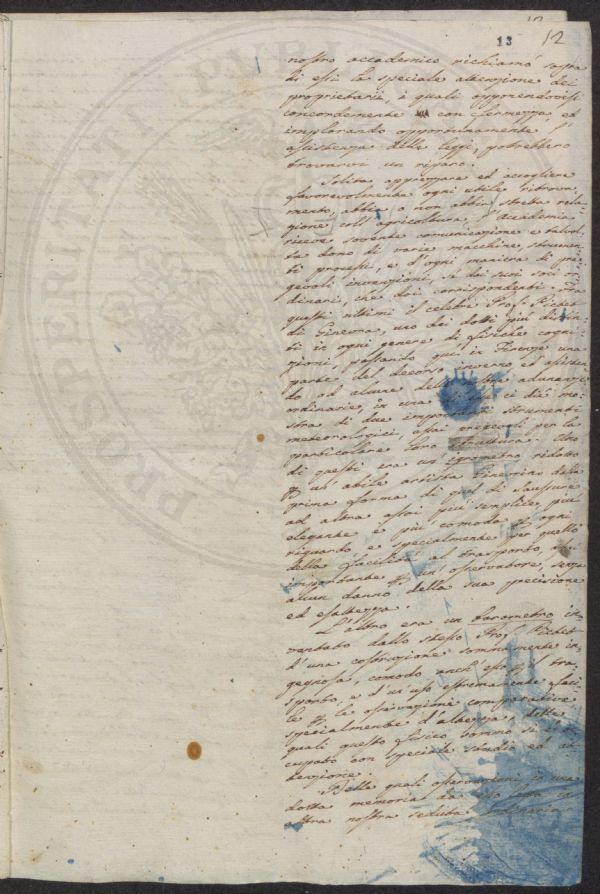 13 12
nostro accademico richiamò sopra
di essi la speciale attenzione dei
proprietarii, i quali opponendovisi
concordemente con fermezza ed
implorando opportunamente l'
assistenza delle leggi, potrebbero
trovarvi un riparo.
Solita apprezzare ed accogliere
favorevolmente ogni utile ritrova,
mento, abbia o non abbia stretta rela,
zione coll'agricoltura, l'Accademia
riceve sovente comunicazione e talvol,
ta dono di varie macchine, strumen,
ti processi, e d'ogni maniera di pre,
gevoli invenzioni, sì dai suoi soci or,
dinari, che dai corrispondenti. Fra
questi ultimi il celebre Prof. Pictet
di Ginevra, uno dei dotti più distin,
ti in ogni genere di fisiche cogni,
zioni, passando qui in Firenze una
parte del decorso inverno ed assisten,
do ad alcune delle nostre adunanze
ordinarie, in una di esse ci diè mo,
stra di due importanti strumenti
meteorologici, assai pregevoli per la
particolare loro struttura. Uno
di questi era un igrometro ridotto
da un'abile artista Ginevrino dalla
prima forma di quel di Saussure
ad altra assai più semplice, più
elegante e più comoda per ogni
riguardo, e specialmente per quello
della facilità al trasporto, sì
importante per un'osservatore, senza
alcun danno della sua precisione
ed esattezza.
L'altro era un barometro in,
ventato dallo stesso Prof. Pictet
d'una costruzione sommamente in,
gegnosa, comodo anch'esso per il tra,
sporto, e d'un uso estremamente faci,
le per le osservazioni comparative
specialmente d'altezza, delle
quali questo fisico sommo si è oc,
cupato con speciale studio ed at,
tenzione.
Delle quali osservazioni in una
dotta memoria da esso letta in
altra nostra seduta ordinaria
PROSPERITATI PUBLICAE